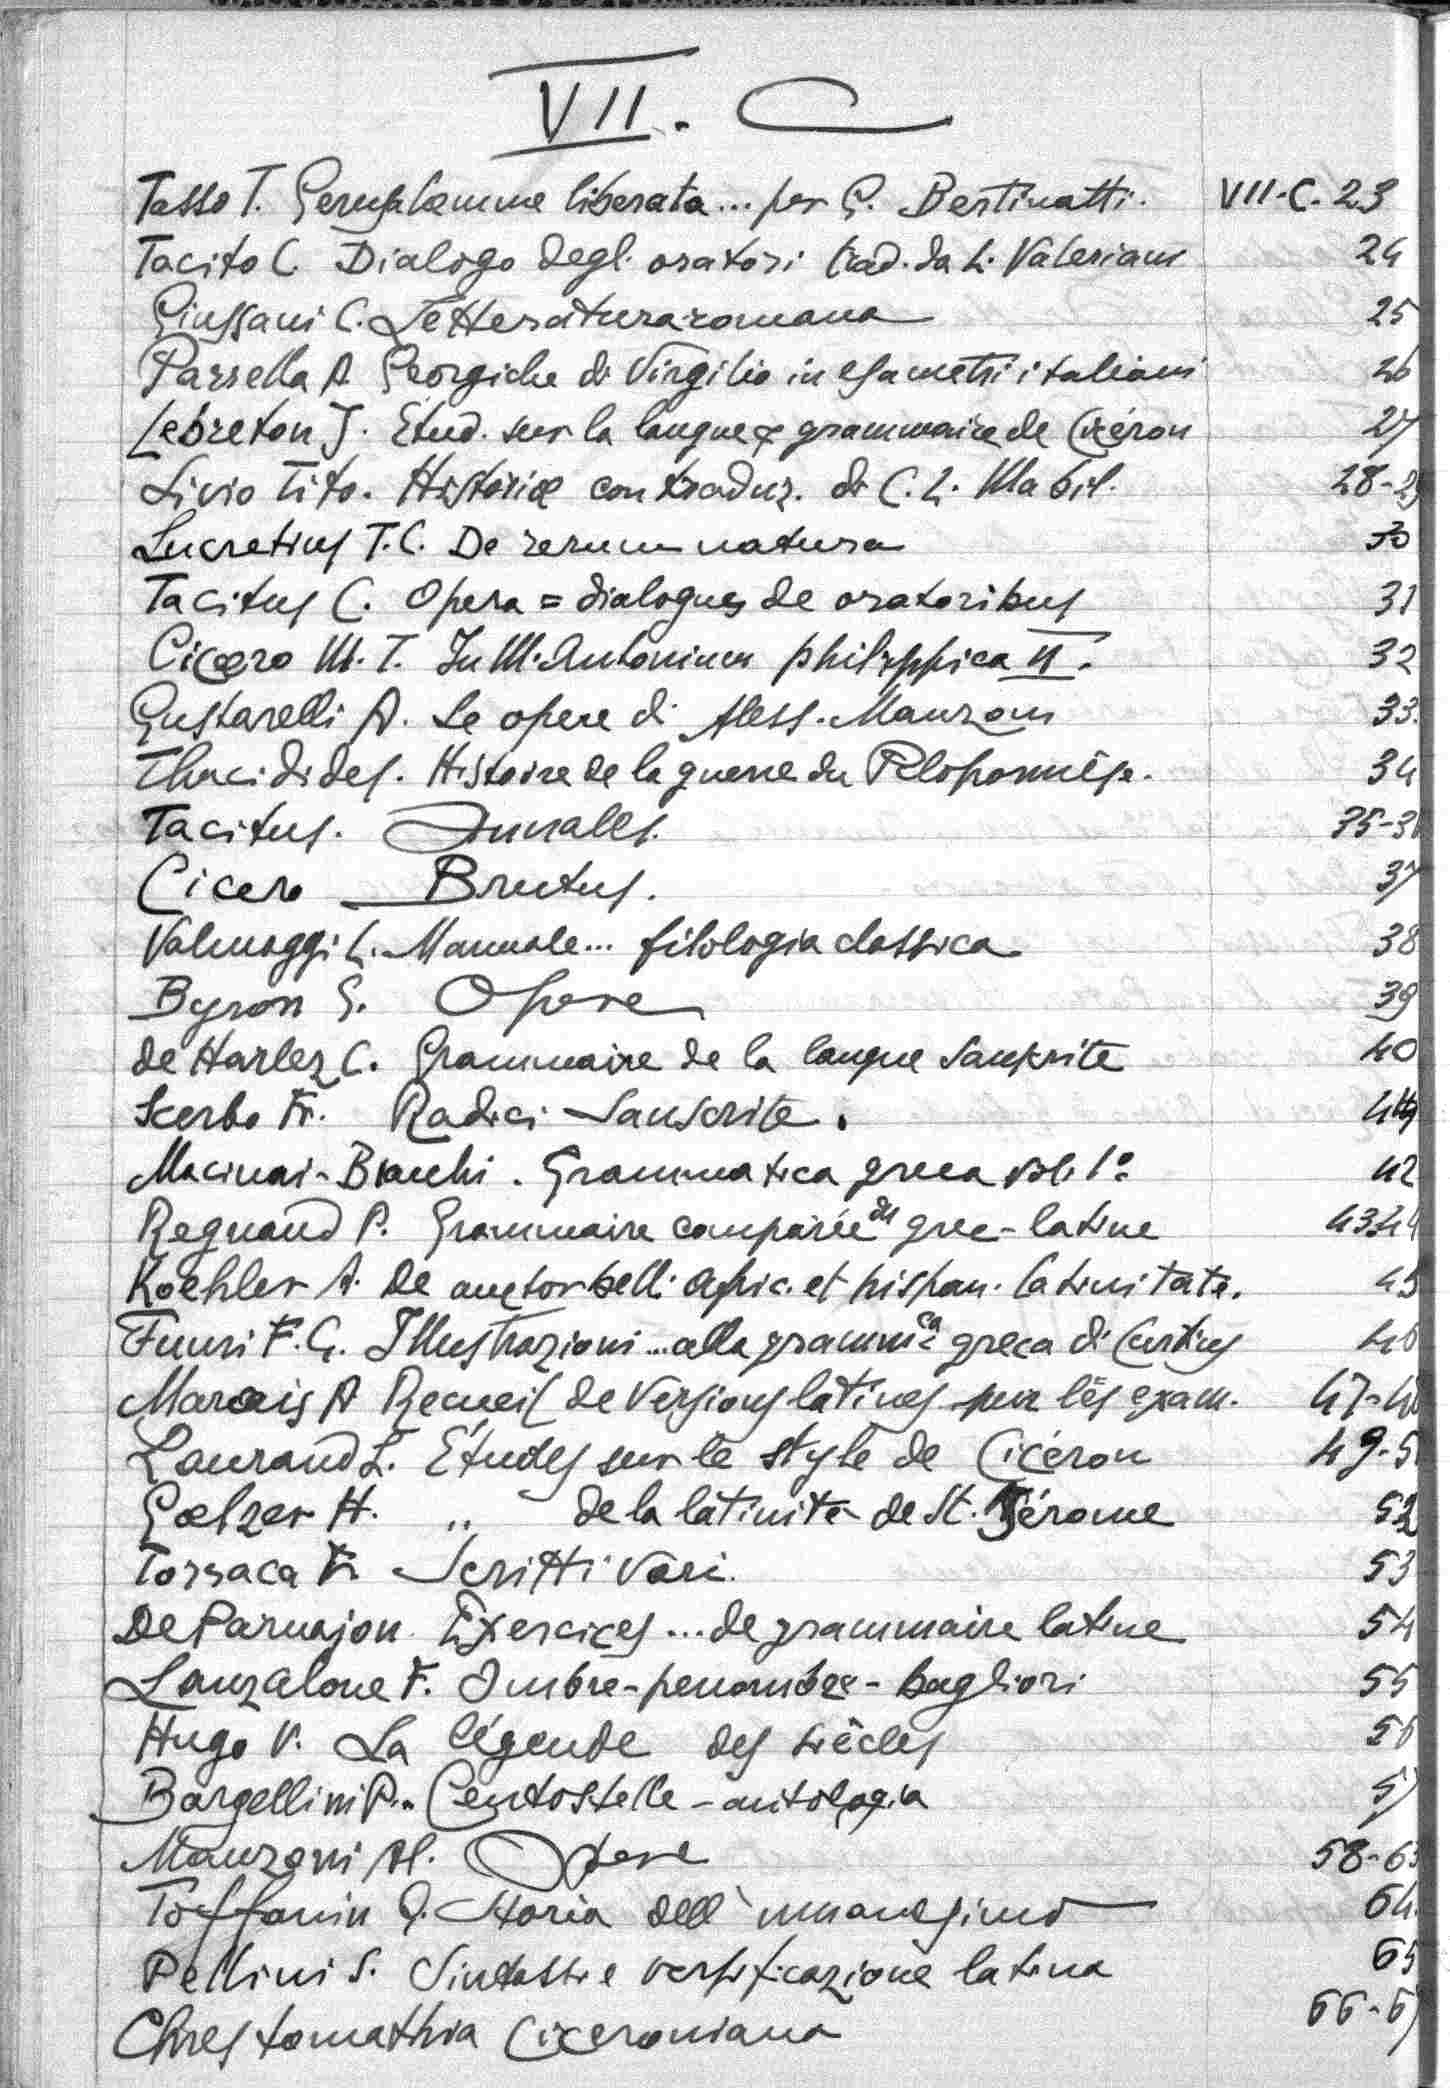 VII. C
Tasso T. Gerusalemme liberata... per G. Bertinatti. VII-C. 23
Tacito C. Dialogo degl. oratori trad. da L. Valeriani 24
Giussani C. Letteratura romana 25
Passella A Georgiche di Virgilio in esametri italiani 26
Lebreton J. Étud. sur la langue & grammaire de Cicéron 27
Livio Tito. Historiæ con traduz. di C. L. Mabil. 28-29
Lucretius T. C. De rerum natura 30
Tacitus C. Opera = dialogues de oratoribus 31
Cicero M. T. In M. Antonium philippica II. 32
Gustarelli A. Le opere di Aless. Manzoni 33.
Thucidides. Histoire de la guerre du Péloponnèse. 34
Tacitus. Annales. 35-36
Cicero Brutus. 37
Valmaggi L. Manuale... filologia classica 38
Byron G. Opere 39
de Harlez C. Grammaire de la langue sanskrite 40
Scerbo Fr. Radici Sanscrite. 41
Macinai-Bianchi. Grammatica greca vol. 1º 42
Regnaud P. Grammaire comparée du grec-latine 43.44
Koehler A. De auctor. belli afric. et hispan. latinitate. 45
Fumi F. G. Illustrazioni... alla gramm.ca greca di Curtius 46
Marais A Recueil de versions latines pur les exam. 47-48
Laurand L. Études sur le style de Cicéron 49-51
Goelzer H. ,, de la latinité de St. Jérome 52
Torraca F. Scritti vari. 53
De Parnajon Exercices ... de grammaire latine 54
Lanzalone F. Ombre-penombre-bagliori 55
Hugo V. La légende des siècles 56
Bargellini P. Centostelle - antologia 57
Manzoni Al. Opere 58-63
Toffanin G. Storia dell'umanesimo 64.
Pellini S. Sintassi e versificazione latina 65
Chrestomathia Ciceroniana 66-67